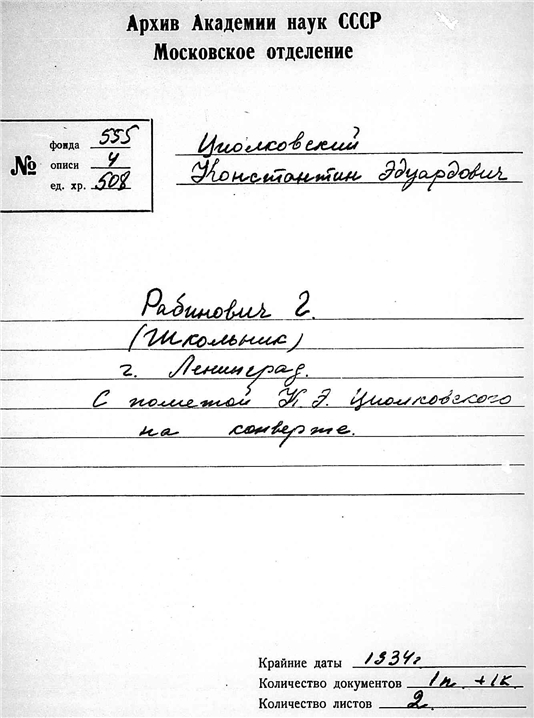 Архив Академии наук СССР
Московское отделение
№
фонда 555
описи 4
ед. хр. 508
Циолковский
Константин Эдуардович
Рабинович Г.
(Школьник)
г. Ленинград.
С пометой К. Э. Циолковского
на конверте.
Крайние даты 1934г
Количество документов 1п. +1к.
Количество листов 2.